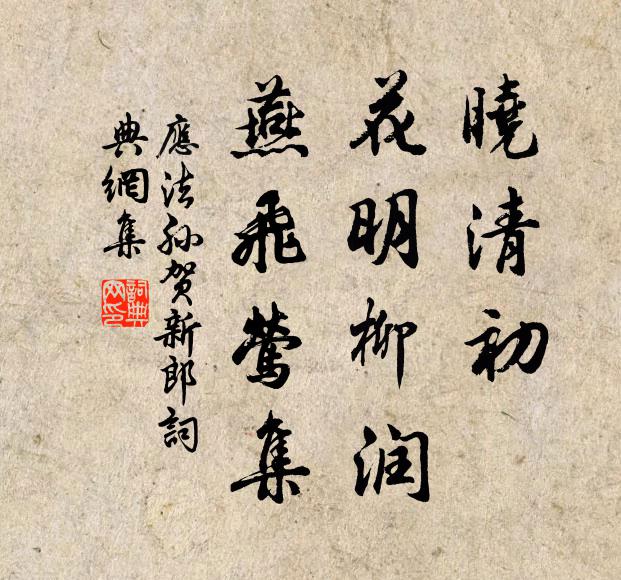 曉清初
花明柳润
燕飛鶯集
應法孙賀新郎詞
典網集
詞典
网印